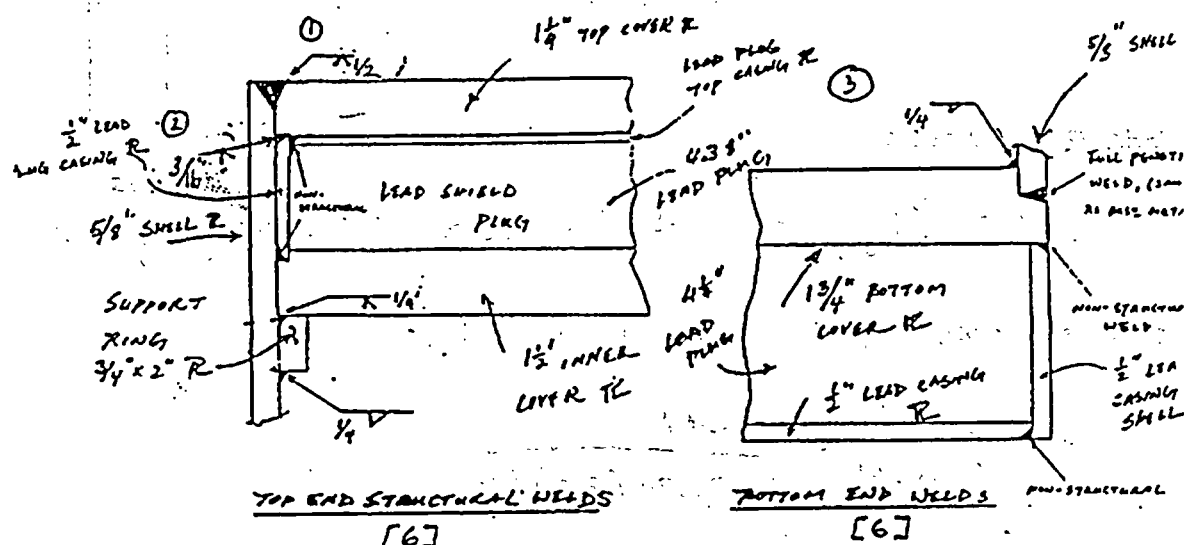 ①
1/2
1 1/4" TOP COVER ℞
LEAD PLUG
TOP CASING ℞
1/2" LEAD
CASING ℞
②
3/16"
NON-
STRUCTURAL
LEAD SHIELD
PLUG
4.38"
LEAD PLUG
5/8" SHELL ℞
1/4
SUPPORT
RING
3/4" x 2" ℞
1 1/2" INNER
COVER ℞
1/4
TOP END STRUCTURAL WELDS
[6]
③
5/8" SHELL
1/4
FULL
WELD,
4 1/4"
LEAD
PLUG
1 3/4" BOTTOM
COVER ℞
NON-STRUCTURAL
WELD
1/2"
CASING
SHELL
1/2" LEAD CASING
℞
NON-STRUCTURAL
BOTTOM END WELDS
[6]